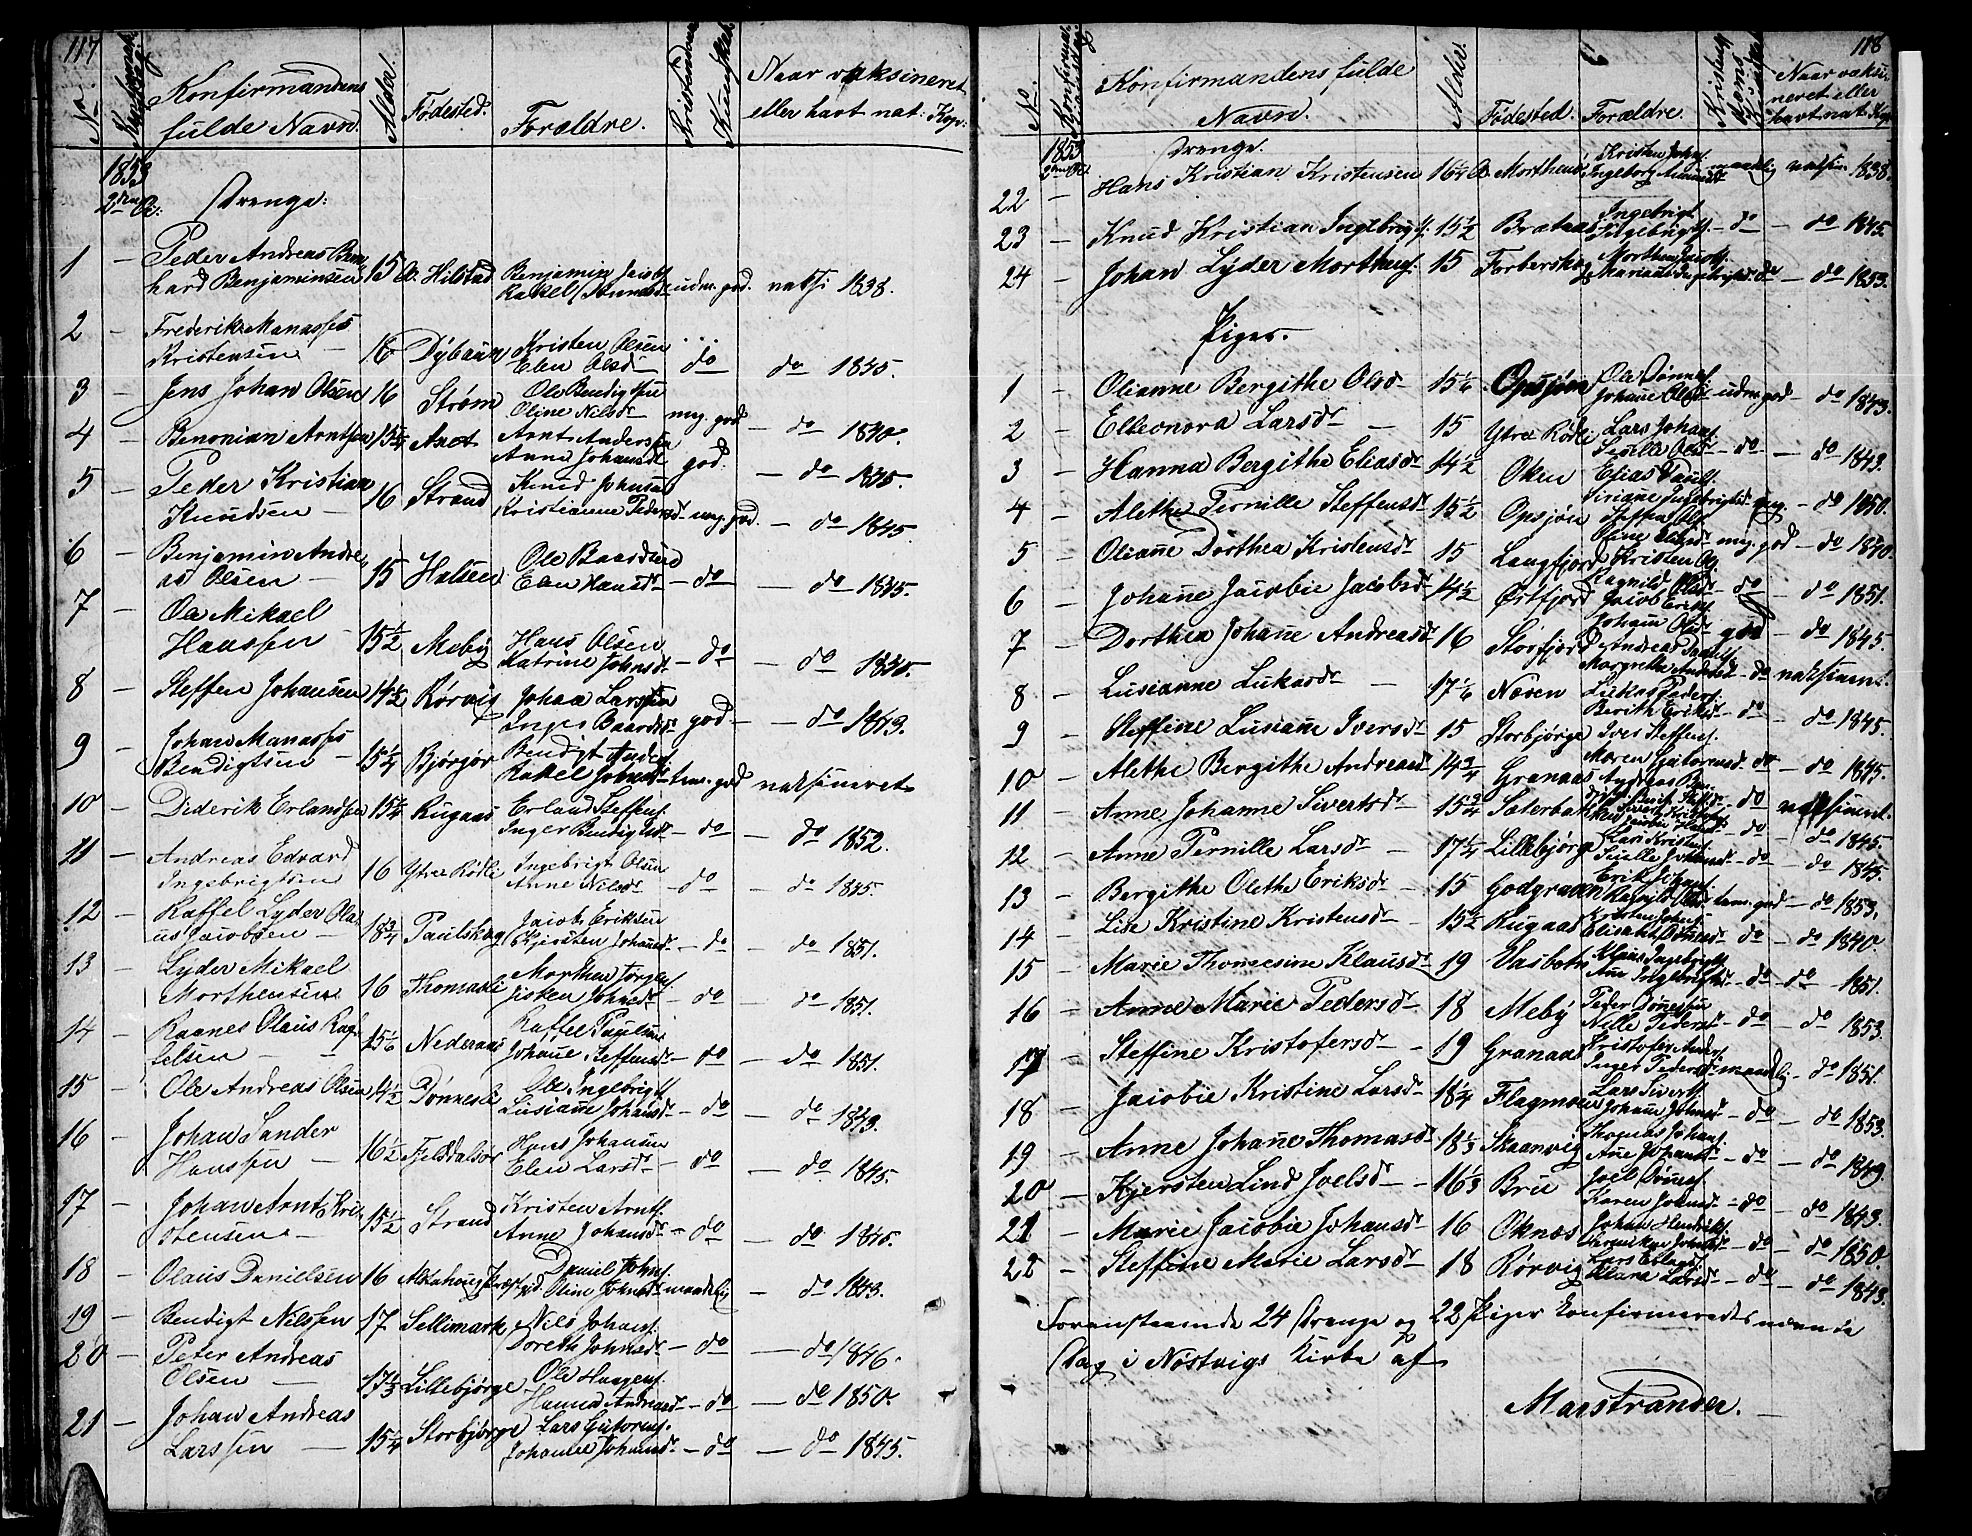 117
No.
Konfirmandens
fulde Navn.
Alder.
Fødested.
Forældre.
Kristendoms
Kundskab.
Naar vaksineret
eller havt nat: Kop:
1853
Drenge:
1 — Peder Andreas Bern
hard Benjaminsen 15 Hilstad Benjamin Jacobs
Rakel udm. god. vaksi 1838.
2 — Frederik Manasses
Kristensen — 16 Dybaun Kristen Olsen
Elen Olsd — do do 1845.
3 — Jens Johan Olsen 16 Strøm Ole Bendigtsen
Oline Nilsd — meg. god — do 1840.
4 — Benonian Arntsen 15¼ Arnt Anderssen
Anne Johansd god. — do 1845.
5 — Peder Kristian
Knudsen — 16 Strand Knud Johnsen
Kristianne Pedersd meg. god. — do 1845.
6 — Benjamin Andre
as Olsen — 15 Halsen Ole Baardsen
Elen Hansd — do — do 1845.
7 — Ole Mikael
Hanssen — 15½ Meby Hans Olsen
Katrine Johnsd — do — do 1850.
8 — Steffen Johansen 14½ Rørvig Johan Larssen
Inger Baardsd god — — do 1843.
9 — Johan Manasses
Bendigtsen — 15¼ Bjørjør Bendigt Anders
Rakel Johnsd tem. god vaksineret
10 — Diderik Erlandsen 15¼ Rugaas Erland Steffens.
Inger Bendigtsd — do — do 1852.
11 — Andreas Edvard
Ingebrigtsen 16 Ytre Rødli Ingebrigt Olsen
Anne Nilsd — do — do 1845
12 — Raffel Lyder Ola
us Jacobsen — 18¾ Paulskog Jacob Eriksen
Kjersten Johansd — do — do 1851.
13 — Lyder Mikael
Morthensen 16 Thomasli Morthen Jørgens.
Sisken Johnsd — do — do 1851.
14 — Raanes Olaus Raf
felsen — 15⅙ Nederaas Raffel Paulsen
Johanne Steffensd — do — do 1851.
15 — Ole Andreas Olsen 14½ Dønnesli Ole Ingebrigts
Lusianne Johansd — do — do 1843.
16 — Johan Sander
Hanssen — 16½ Fjelddalsør Hans Johansen
Elen Larsd — do — do 1845.
17 — Johan Arnt Kri
stensen — 15½ Strand Kristen Arnts.
Anne Johansd — do — do 1845.
18 — Olaus Danielsen 16 Alstahoug Præstegjd. Daniel Johns
Oline Johnsd maadelig — do 1843.
19 — Bendigt Nilssen 17 Sellimark Nils Johans.
Doreth Johnsd — do — do 1846.
20 — Peter Andreas
Olsen — 17⅓ Lillebjørge Ole Haagens.
Hanna Andreasd — do — do 1850.
21 — Johan Andreas
Larssen — 15¼ Storbjørge Lars Gutorms.
Johanne Johansd — do — do 1845.
118
No.
Konfirmandens fulde
Navn.
Alder.
Fødested.
Forældre.
Naar vaksi
neret eller
havt nat. Kop
1853
Drenge.
22 — Hans Kristian Kristensen 16¼ Kristen Johns.
Ingeborg maadelig vaksin. 1838.
23 — Knud Kristian Ingebrigts. 15½ Brataas Ingebrigt
— do — do 1845.
24 — Johan Lyder Morthens. 15 Forberskog Morthen Jacobs
— do 1853.
Piger.
1 — Olianne Bergithe Olsd 15⅙ Opsjøen Ole Dønnes
Johanne Olsd udm. god — do 1843.
2 — Elleonora Larsd — 15 Ytre Rødli Lars Johans.
Olsd — do — do 1843.
3 — Hanna Bergithe Eliasd 14½ Oken Elias Pauls.
Ingebrigtsd meg. — do 1850.
4 — Alethe Pernille Steffensd 15½ Opsjøn Steffen Ols.
Oline meg. god — do 1840.
5 — Olianne Dorthea Kristensd 15 Langfjord Kristen Ol
Ragnild Olsd do — do 1851.
6 — Johanne Jacobie Jacobsd 14½ Østfjord Jacob Eriks.
Johanne Olsd god — do 1845.
7 — Dorthea Johanne Andreasd 16 Storfjord Andreas
Margrethe — do vaksineret.
8 — Lusianne Lukasd — 17⅙ Næven Lukas Peders.
Berith Eriksd — do — do 1845.
9 — Steffine Lusianne Iversd 15 Storbjørge Iver Steffens.
Maren Gutormsd do — do 1845.
10 — Alethe Bergithe Andreasd 14¾ Granaas Andreas
do vaksineret.
11 — Anne Johanne Sivertsd 15¾ Saterbak Sivert
do — do 1845.
12 — Anne Pernille Larsd — 17¼ Lillebjørge Lars Kristens
— do — do 1845.
13 — Bergithe Olethe Eriksd — 15 Godgraven Erik Johns
Ragnild tem. god — do 1853.
14 — Lise Kristine Kristensd 15½ Rugaas Kristen Johns
Elisabet — do — do 1840
15 — Marie Thomesine Klausd 19 Vasbotn Klaus Ingebrigts
Ane — do — do 1851.
16 — Anne Marie Pedersd 18 Meby Peder Dønnesen
Nelle Pedersd — do — do 1853.
17 — Steffine Kristofersd — 19 Granaas Kristofer Anders
Inger Pedersd maadelig — do 1851.
18 — Jacobie Kristine Larsd 18¼ Flagmoen Lars Siverts
Johanne Johnsd — do — do 1853.
19 — Anne Johanne Thomasd 18⅓ Skaanvig Thomas Johans.
Ane Johansd — do — do 1849.
20 — Kjersten Lind Joelsd — 16⅓ Brie Joel Dønnes.
Karen Johnsd — do — do 1843.
21 — Marie Jacobie Johansd 16 Oknes Johan Hendriks
— do — do 1850.
22 — Steffine Marie Larsd 18 Rørvig Lars
Larsd — do — do 1843.
Foranstaaende 24 Drenge og 22 Piger konfirmeredes nævnte
Dag i Nøstvigs Kirke af
Marstrander.